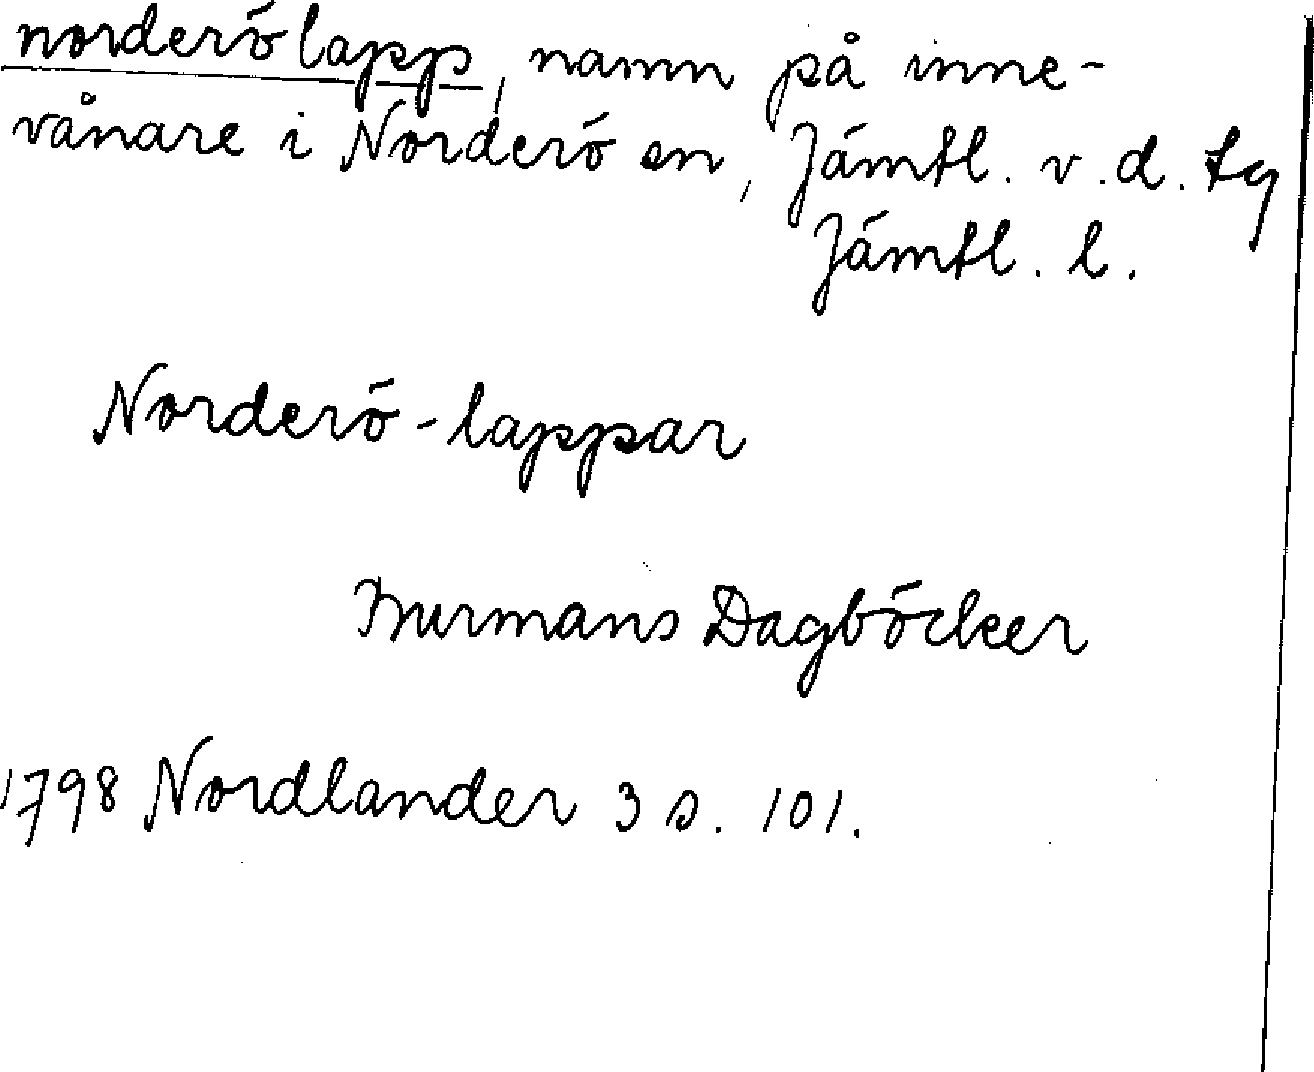 norderölapp, namn på inne-
vånare i Norderö sn, Jämtl. v.d. tg
Jämtl. l.
Norderö-lappar
Burmans Dagböcker
1798 Nordlander 3 s. 101.